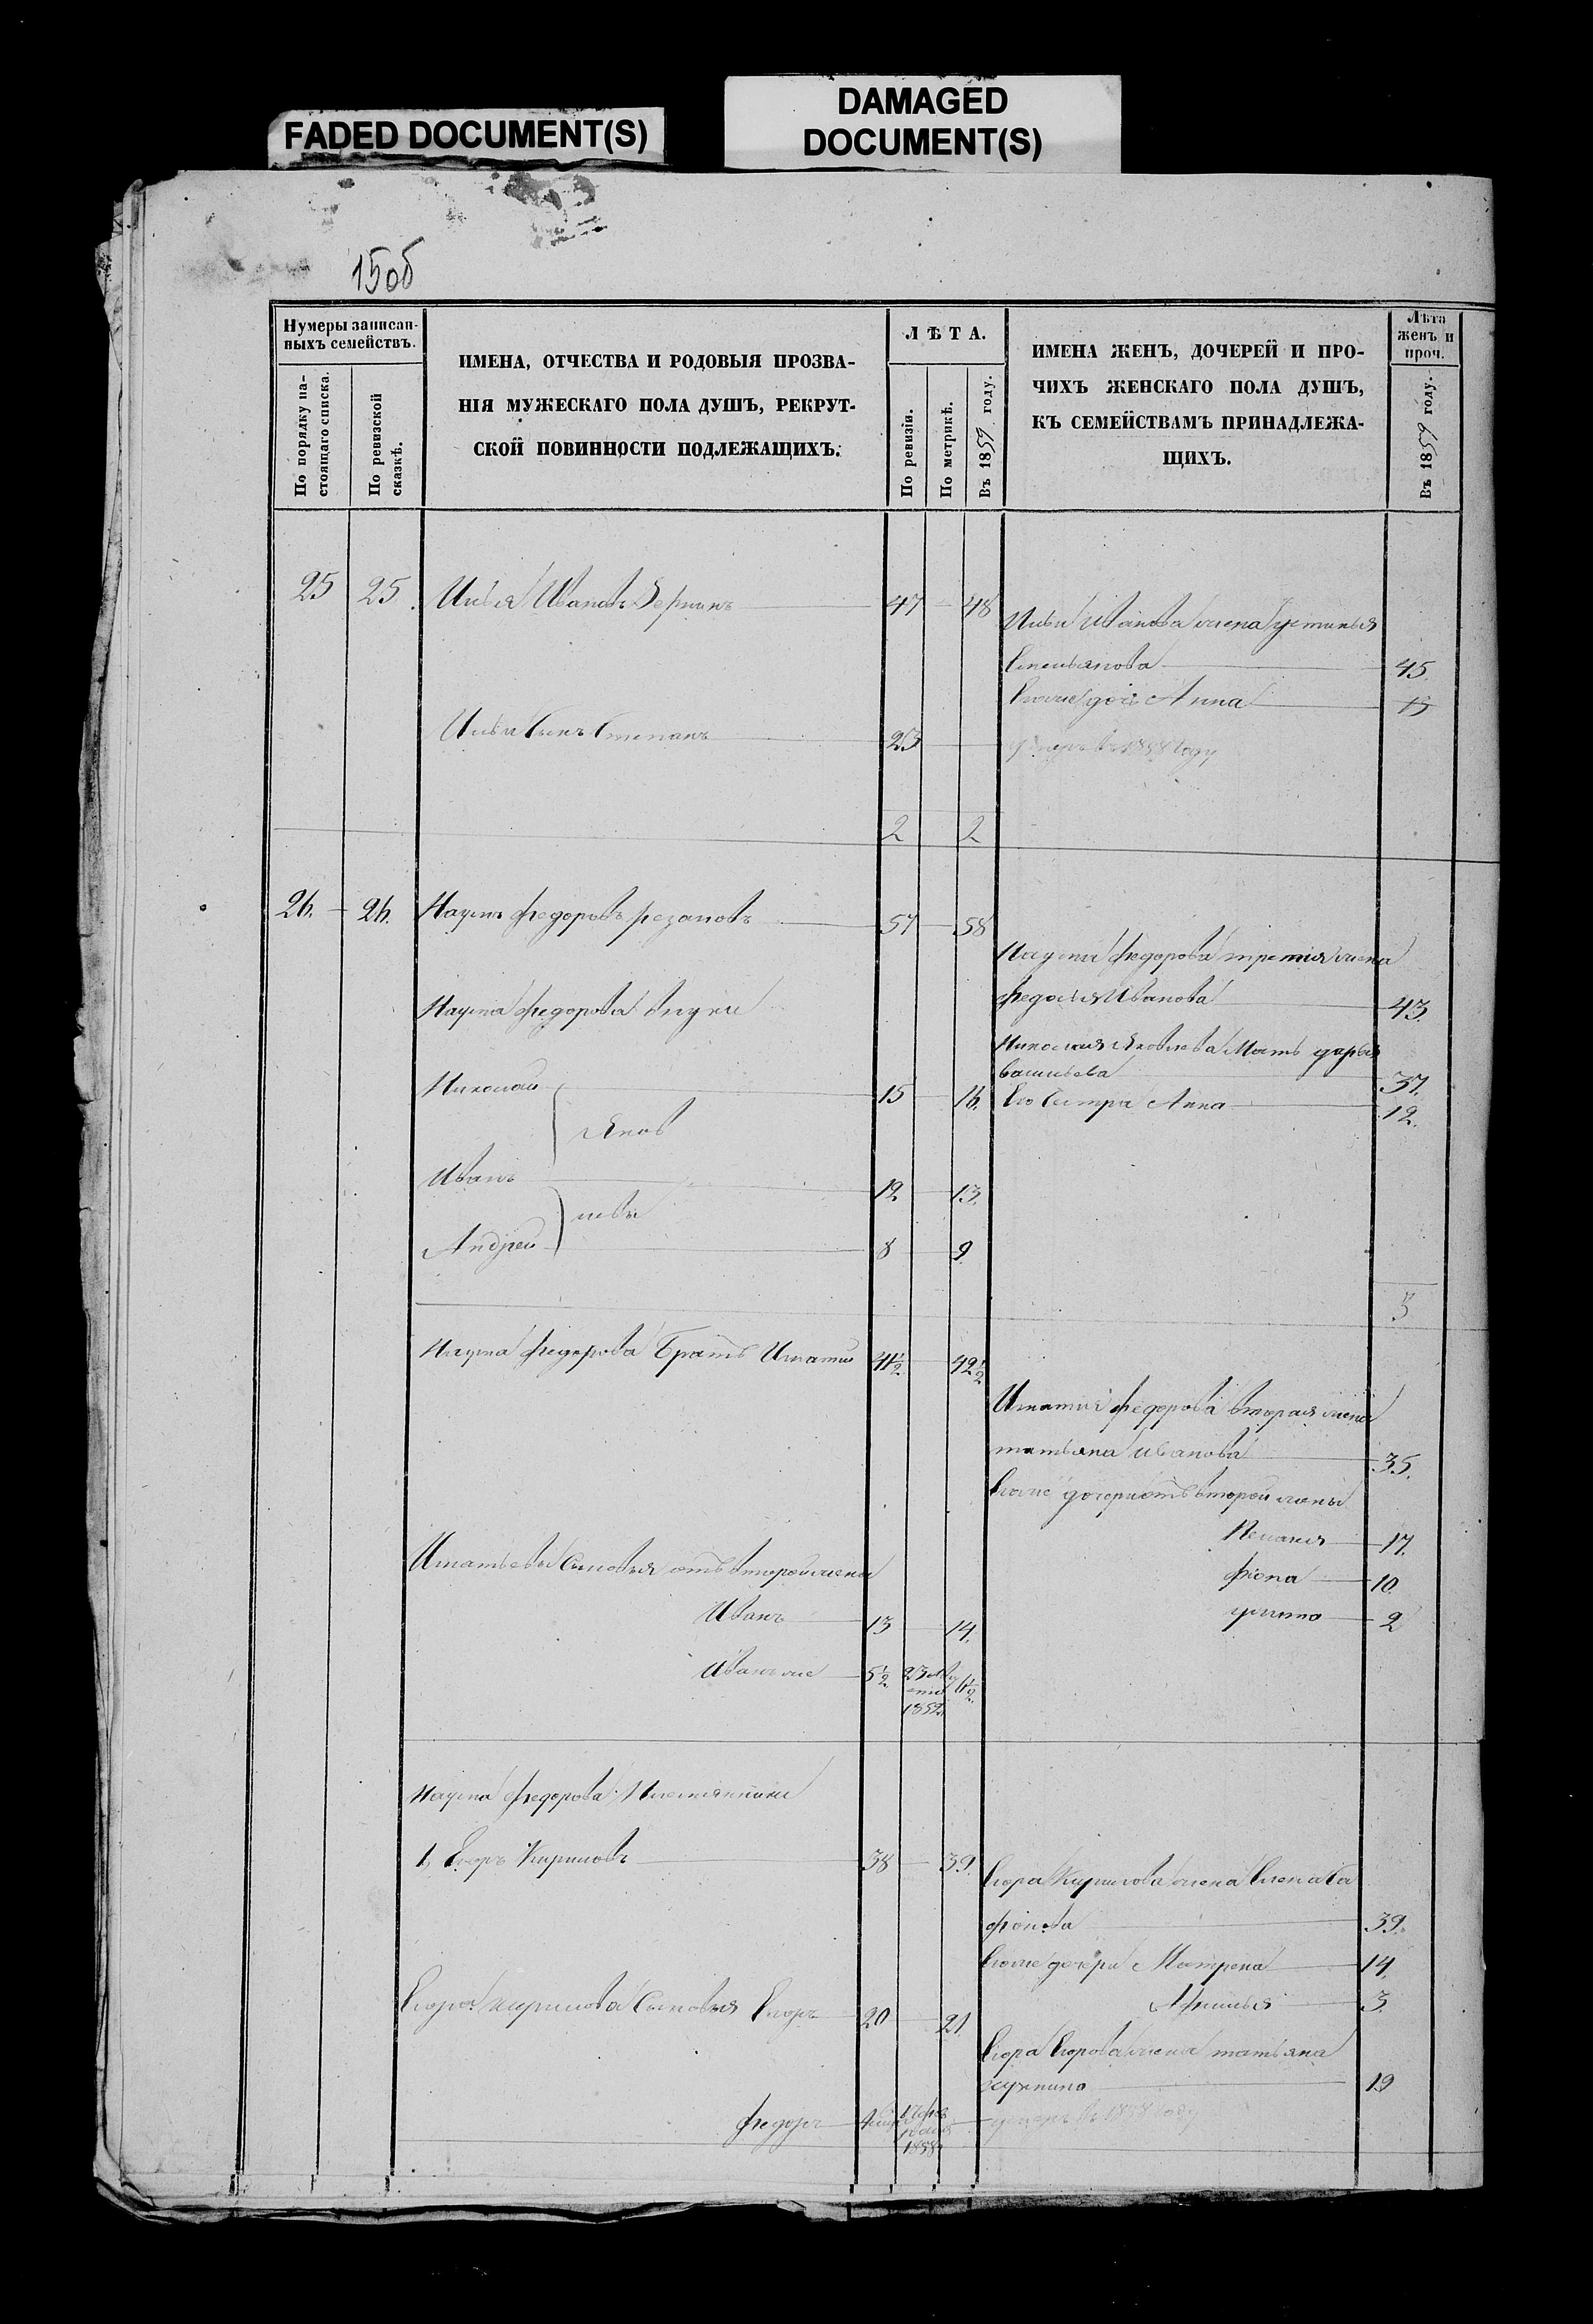 FADED DOCUMENT(S)
DAMAGED
DOCUMENT(S)
150б
Нумеры записан-
ныхъ семействъ.
По порядку на-
стоящаго списка.
По ревизской
сказкѣ.
ИМЕНА, ОТЧЕСТВА И РОДОВЫЯ ПРОЗВА-
НІЯ МУЖЕСКАГО ПОЛА ДУШЪ, РЕКРУТ-
СКОЙ ПОВИННОСТИ ПОДЛЕЖАЩИХЪ.
ЛѢТА.
По ревизіи.
По метрикѣ.
Въ 1859 году.
ИМЕНА ЖЕНЪ, ДОЧЕРЕЙ И ПРО-
ЧИХЪ ЖЕНСКАГО ПОЛА ДУШЪ,
КЪ СЕМЕЙСТВАМЪ ПРИНАДЛЕЖА-
ЩИХЪ.
Лѣта
женъ и
проч.
Въ 1859 году.
25 25. Илья Ивановъ 47 48
Ильи Иванова жена Устинья
Емельянова 45.
Его же дочь Анна 15
Ильи Сынъ Степанъ 23 умеръ въ 1858 году
2 2
26. 26. Наумъ Федоровъ Резановъ 57 58
Наума Федорова третия жена
Федосья Иванова 43.
Наума Федорова внуки
Николая Яковлева Мать дарья
васильева 37.
Николай 15 16. Его Сестра Анна 12.
Яков
Иванъ 12 13.
левы
Андрей 8 9
3
Наума Федорова Братъ Игнатий 41½ 42½
Игнатия Федорова вторая жена
татьяна Иванова 35.
Его же дочери отъ второй жены
Пелагия 17.
Игнатьевы Сыновья отъ второй жены
Фiона 10.
Иванъ 13 14. 2
Иванъ же 5½ 6½
Наума Федорова Племянники
1, Егоръ Кириловъ 38 39.
Егора Кирилова жена Елена Са
фонова 39.
Его же дочери Матрена 14.
Афимья 3.
Егора Кирилова Сыновья Егоръ 20 21
Егора Егорова жена татьяна
19
Федоръ 1858 умеръ въ 1858 году